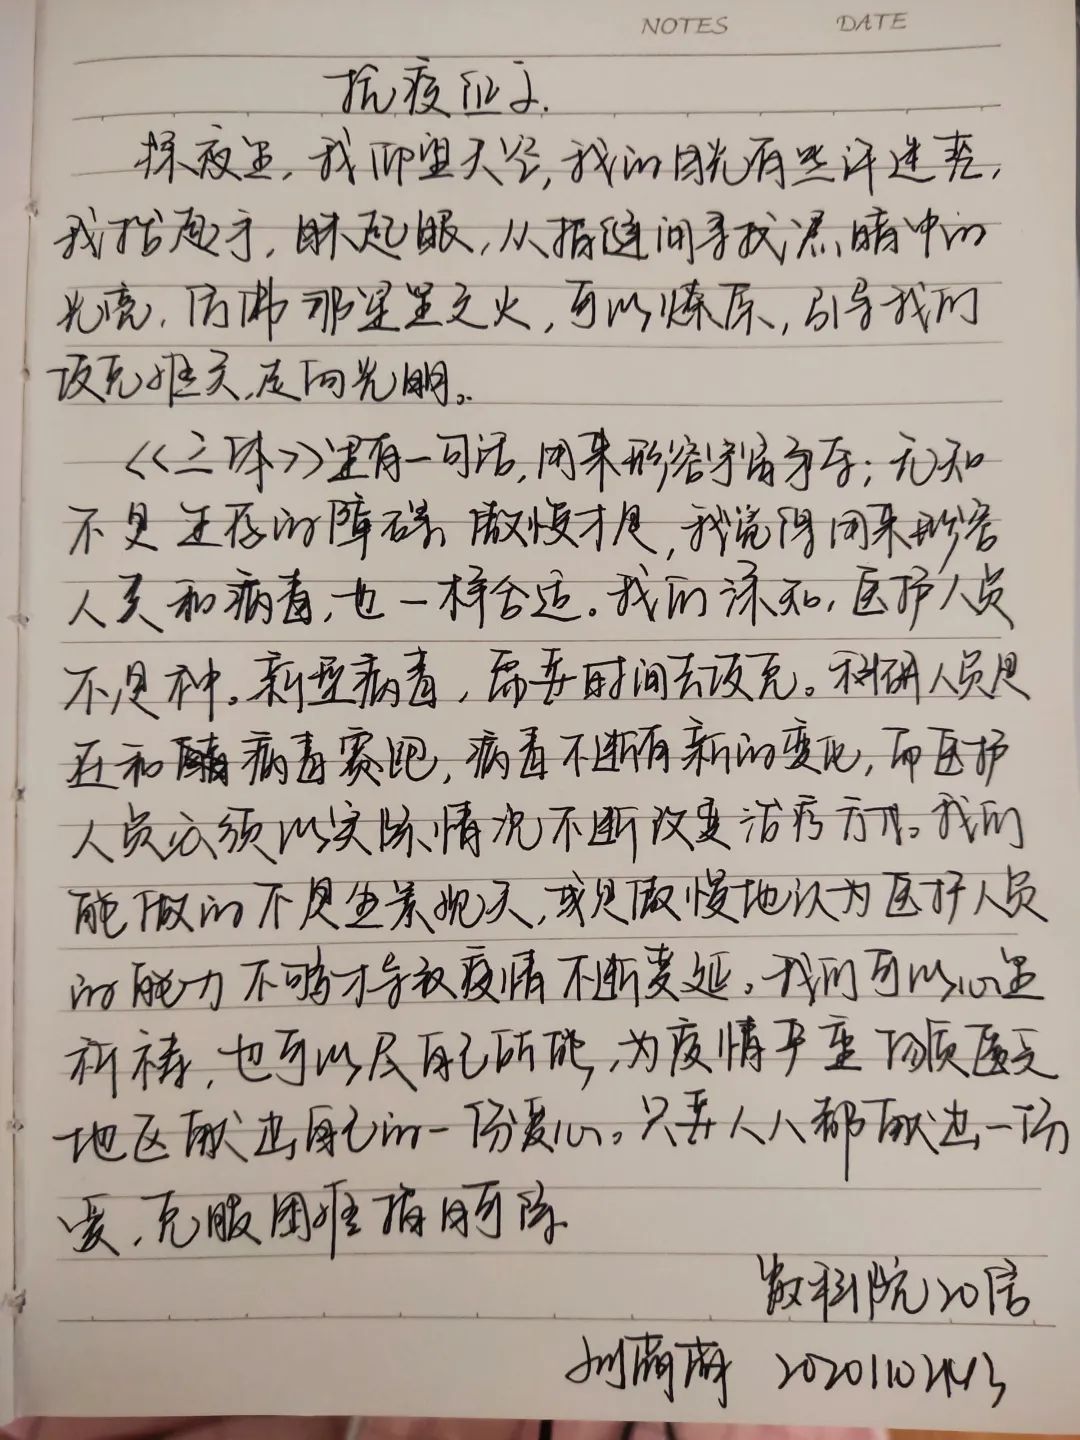 NOTES DATE
抗疫征文.
深夜里,我仰望天空,我的目光有些许迷茫,
我抬起手,眯起眼,从指缝间寻找黑暗中的
光亮,仿佛那星星之火,可以燎原,引导我们
攻克难关,走向光明。
《三体》里有一句话,用来形容宇宙争存:无知
不是生存的障碍,傲慢才是,我觉得用来形容
人类和病毒,也一样合适。我们深知,医护人员
不是神。新型病毒,需要时间去攻克。科研人员是
在和病毒赛跑,病毒不断有新的变化,而医护
人员必须以实际情况不断改变治疗方式。我们
能做的不是坐井观天,或是傲慢地认为医护人员
的能力不够才导致疫情不断蔓延。我们可以心里
祈祷,也可以尽自己所能,为疫情严重物质匮乏
地区献出自己的一份爱心。只要人人都献出一份
爱,克服困难指日可待.
数科院20信
20201102443